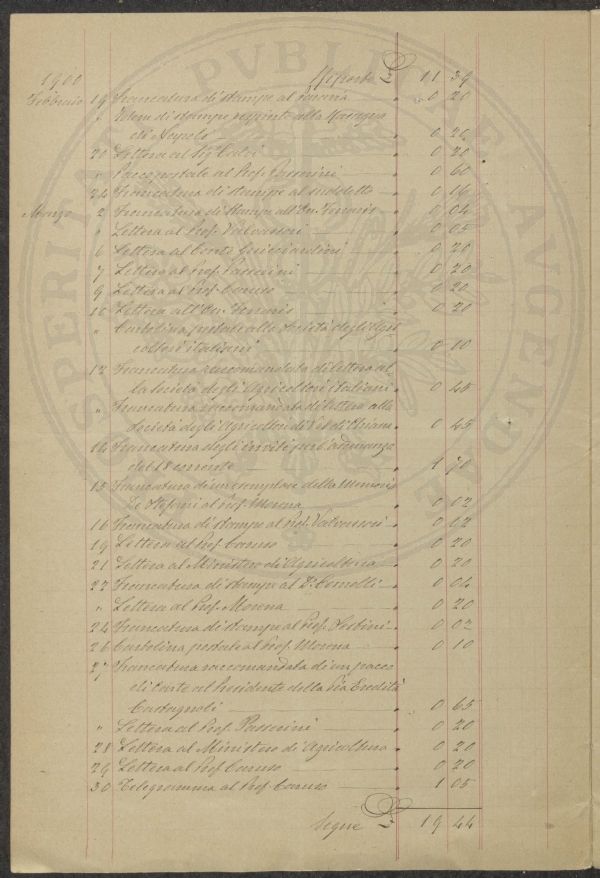 1900
Riporto £ 11 39
Febbraio 19 Francatura di stampe al 0 20
" Idem di stampe respinte alla Rassegna
di Napoli 0 20
20 Lettera al Sig. Calvi 0 20
" Pacco postale al Prof. 0 60
24 Francatura di stampe al suddetto 0 16
Marzo 2 Francatura di stampe all'On. 0 04
" Lettera al Prof. Valvassori 0 05
6 Lettera al Conte Guicciardini 0 20
7 Lettera al Prof. Passerini 0 20
9 Lettera al Prof. Caruso 0 20
Lettera all'On. 0 20
" Cartolina postale alla Società degli Agri
coltori italiani 0 10
12 Francatura raccomandata di lettera al
la Società degli Agricoltori italiani 0 45
" Francatura raccomandata di lettera alla
Società degli Agricoltori di 0 45
14 Francatura degli inviti per l'adunanza
del 18 corrente 1 70
15 Francatura di un esemplare della Memoria
De Stefani al Prof. Morena 0 02
16 Francatura di stampe al Prof. Valvassori 0 02
19 Lettera al Prof. Caruso 0 20
21 Lettera al Ministero di Agricoltura 0 20
22 Francatura di stampe al D. Comelli 0 04
" Lettera al Prof. Morena 0 20
24 Francatura di stampe al Prof. Sestini 0 02
26 Cartolina postale al Prof. Morena 0 10
27 Francatura raccomandata di un pacco
di carte al Presidente della Pia Eredità
Castagnoli 0 65
" Lettera al Prof. Passerini 0 20
28 Lettera al Ministero di Agricoltura 0 20
29 Lettera al Prof. Caruso 0 20
30 Telegramma al Prof. Caruso 1 05
Segue £ 19 44